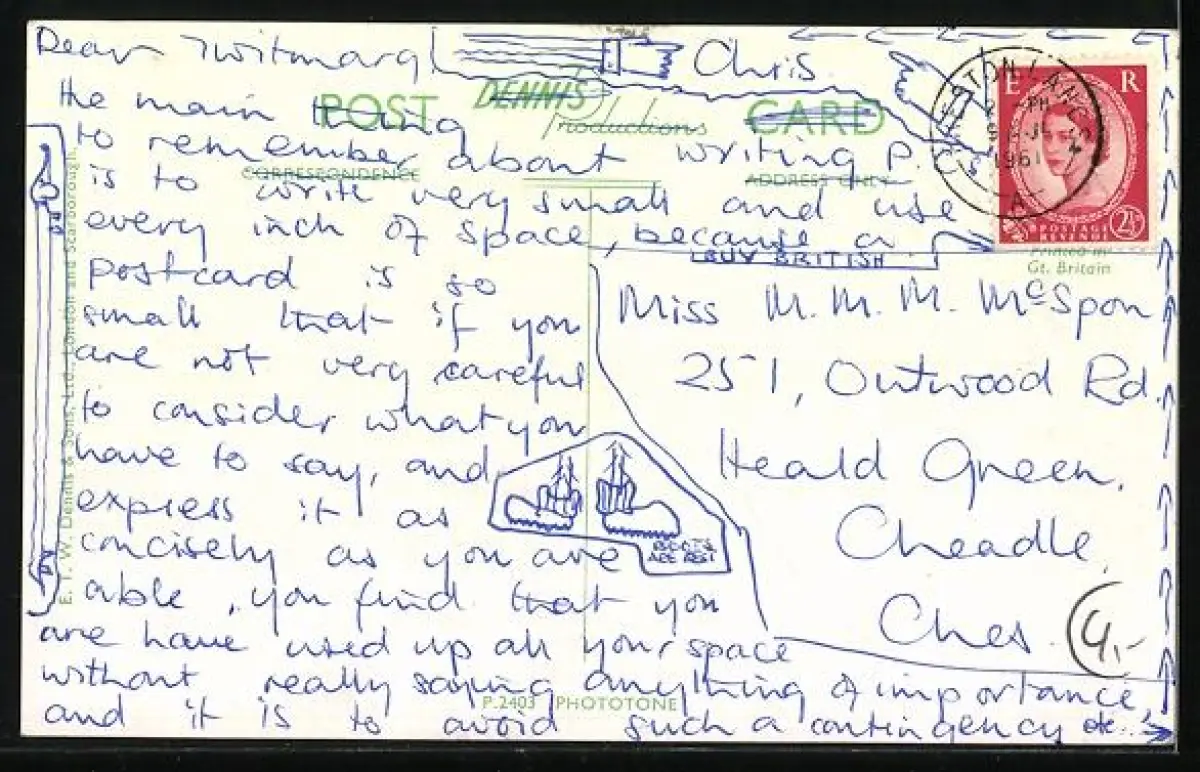 Dear Twitmarg
Chris
the main thing
POST DENNIS Productions CARD
to remember about writing P.C.
CORRESPONDENCE ADDRESS ONLY
is to write very small and use
every inch of space, because a
BUY BRITISH
postcard is so
small that if you
are not very careful
to consider what you
have to say, and
express it as
concisely as you are
able, you find that you
are have used up all your space
without really saying anything of importance,
and it is to avoid such a contingency etc...
BOOTS
ARE BEST
E R
POSTAGE
REVENUE
2½
1961
Printed in
Gt. Britain
Miss M. M. M. McSpon
251, Outwood Rd.
Heald Green,
Cheadle,
Ches.
4,-
E. T. W. Dennis & Sons, Ltd., London and Scarborough.
P.2403 PHOTOTONE